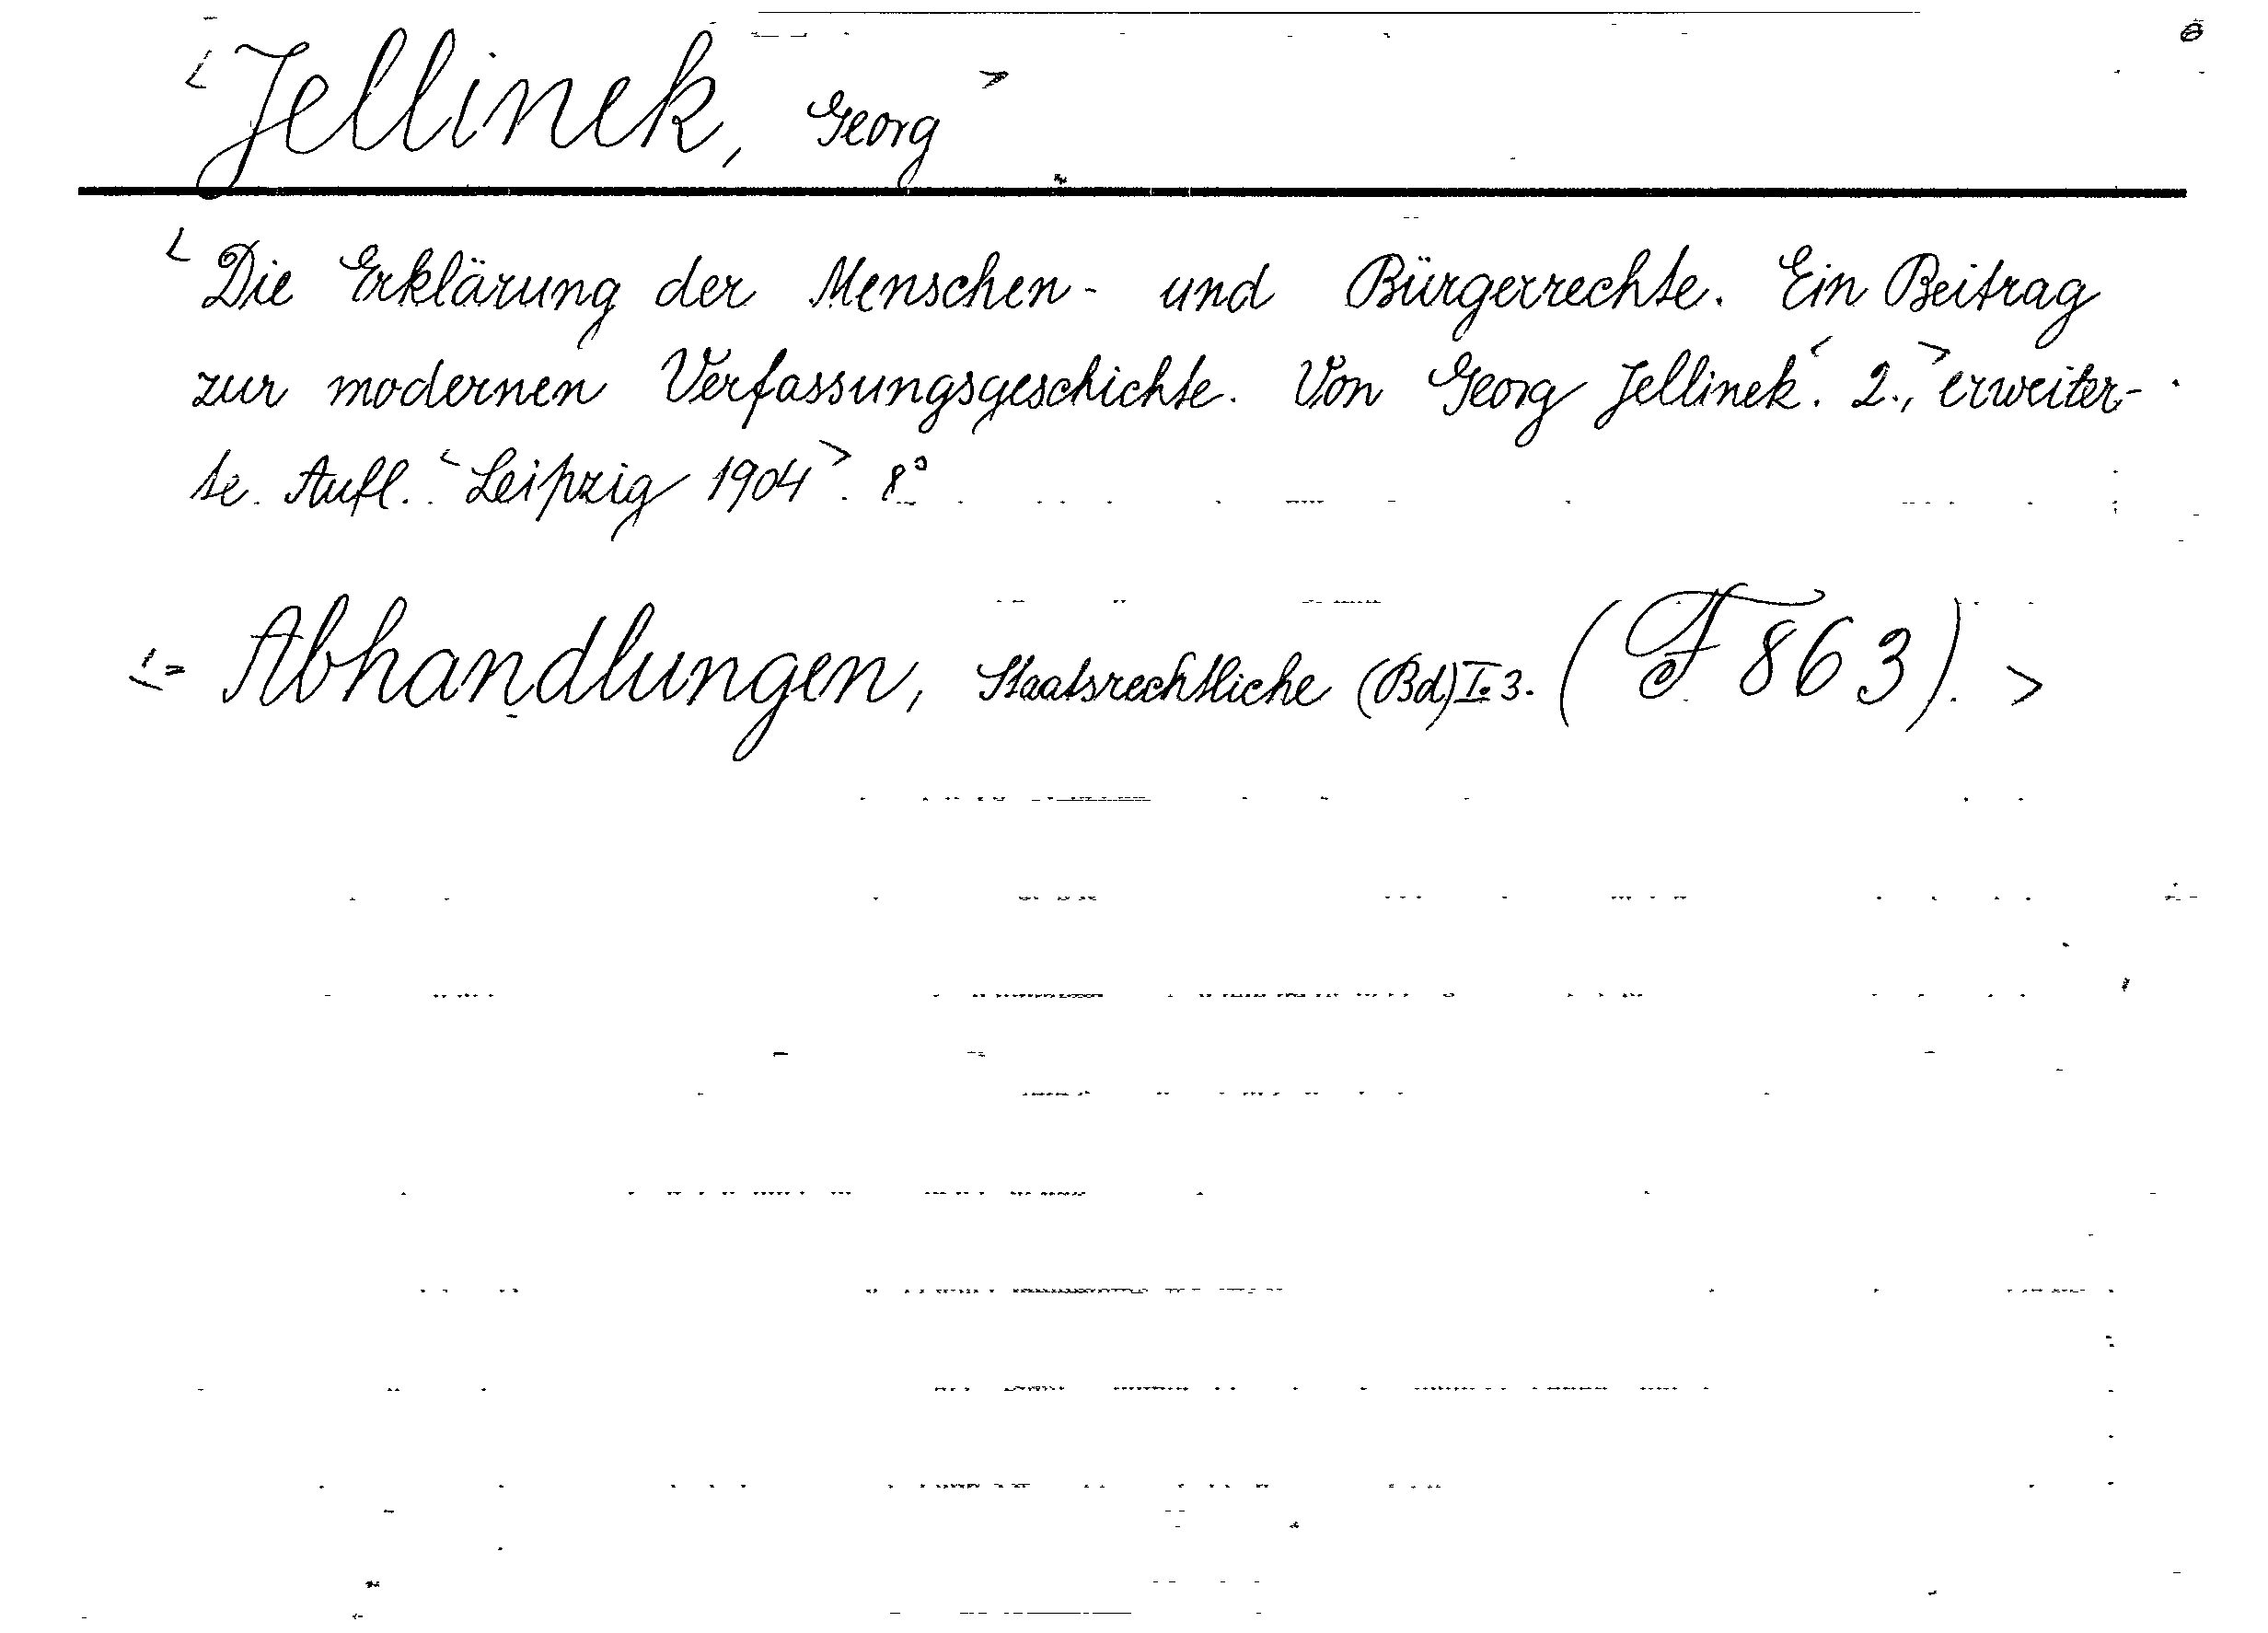 < Jellinek, Georg >
< Die Erklärung der Menschen- und Bürgerrechte. Ein Beitrag
zur modernen Verfassungsgeschichte. Von Georg Jellinek. < 2., > erweiter-
te. Aufl. < Leipzig 1904 >. 8°
< = Abhandlungen, Staatsrechtliche (Bd) I. 3. (F 863). >